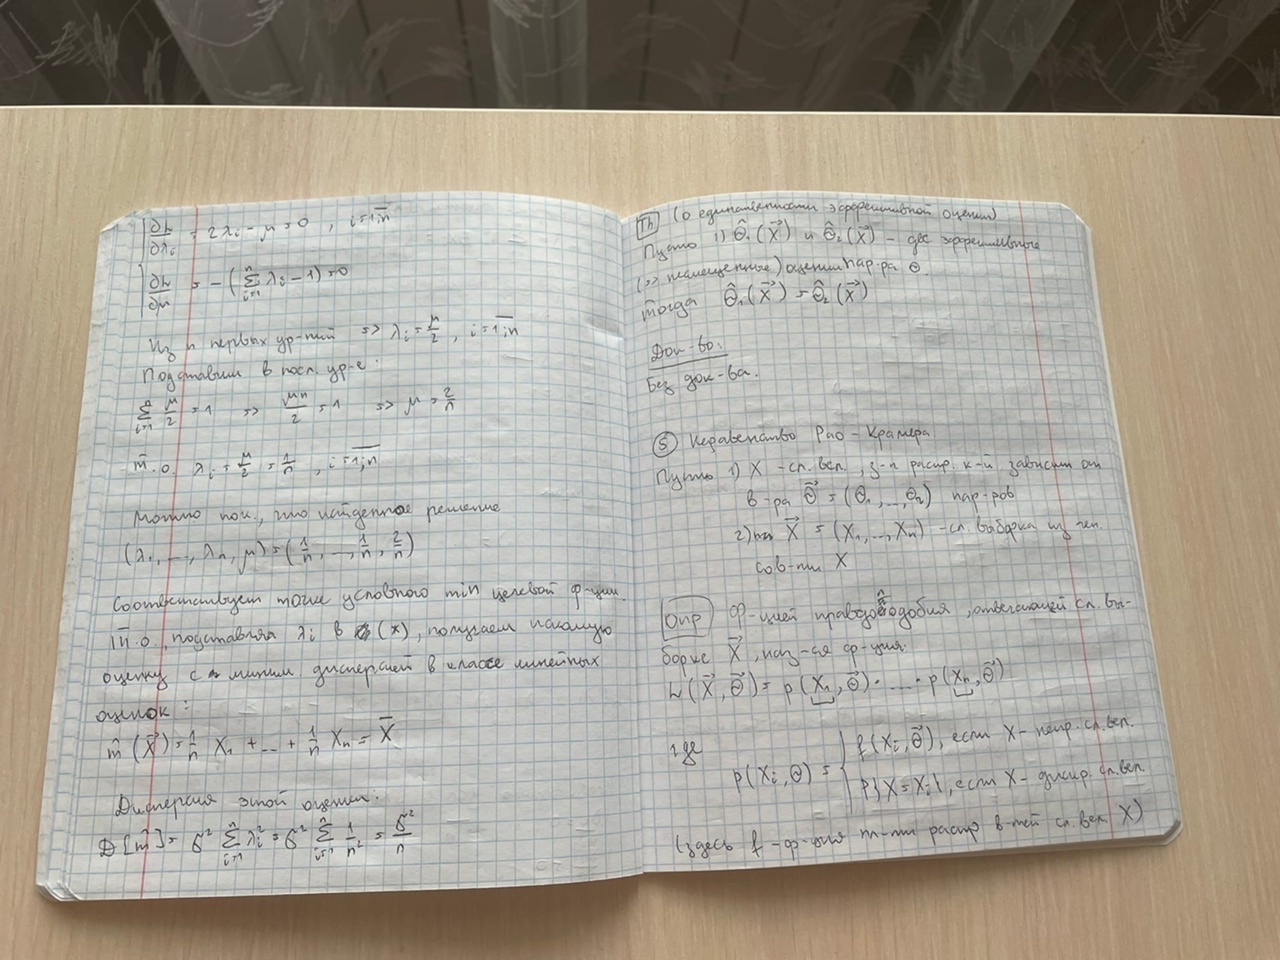 ∂L/∂λi = 2λi − μ = 0 , i = 1,n
∂L/∂μ = −(∑ i=1 n λi − 1) = 0
Из n первых ур-ний => λi = μ/2 , i = 1,n
Подставим в посл. ур-е:
∑ i=1 n μ/2 = 1 => μn/2 = 1 => μ = 2/n
Т.о. λi = μ/2 = 1/n , i = 1,n
Можно пок., что найденное решение
(λ1, ..., λn, μ) = (1/n, ..., 1/n, 2/n)
Соответствует точке условного min целевой ф-ции.
Т.о., подставляя λi в (*), получаем искомую
оценку с миним. дисперсией в классе линейных
оценок:
m̂(X⃗) = 1/n X1 + ... + 1/n Xn = X̄
Дисперсия этой оценки:
D[m̂] = σ² ∑ i=1 n λi² = σ² ∑ i=1 n 1/n² = σ²/n
Th (о единственности эффективной оценки)
Пусть 1) Θ̂1(X⃗) и Θ̂2(X⃗) – две эффективные
(=> несмещенные) оценки пар-ра Θ.
Тогда Θ̂1(X⃗) = Θ̂2(X⃗)
Док-во:
Без док-ва.
5 Неравенство Рао - Крамера
Пусть 1) X – сл. вел., з-н распр. к-й зависит от
в-ра Θ⃗ = (Θ1, ..., Θr) пар-ров
2) X⃗ = (X1, ..., Xn) – сл. выборка из ген.
сов-ти X
Опр Ф-цией правдоподобия, отвечающей сл. вы-
борке X⃗, наз-ся ф-ция:
L(X⃗, Θ⃗) = p(X1, Θ⃗) · ... · p(Xn, Θ⃗)
где
p(Xi, Θ) = { f(Xi, Θ⃗), если X – непр. сл. вел.
P{X = Xi}, если X – дискр. сл. вел.
(здесь f – ф-ция пл-ти распр в-тей сл. вел. X)